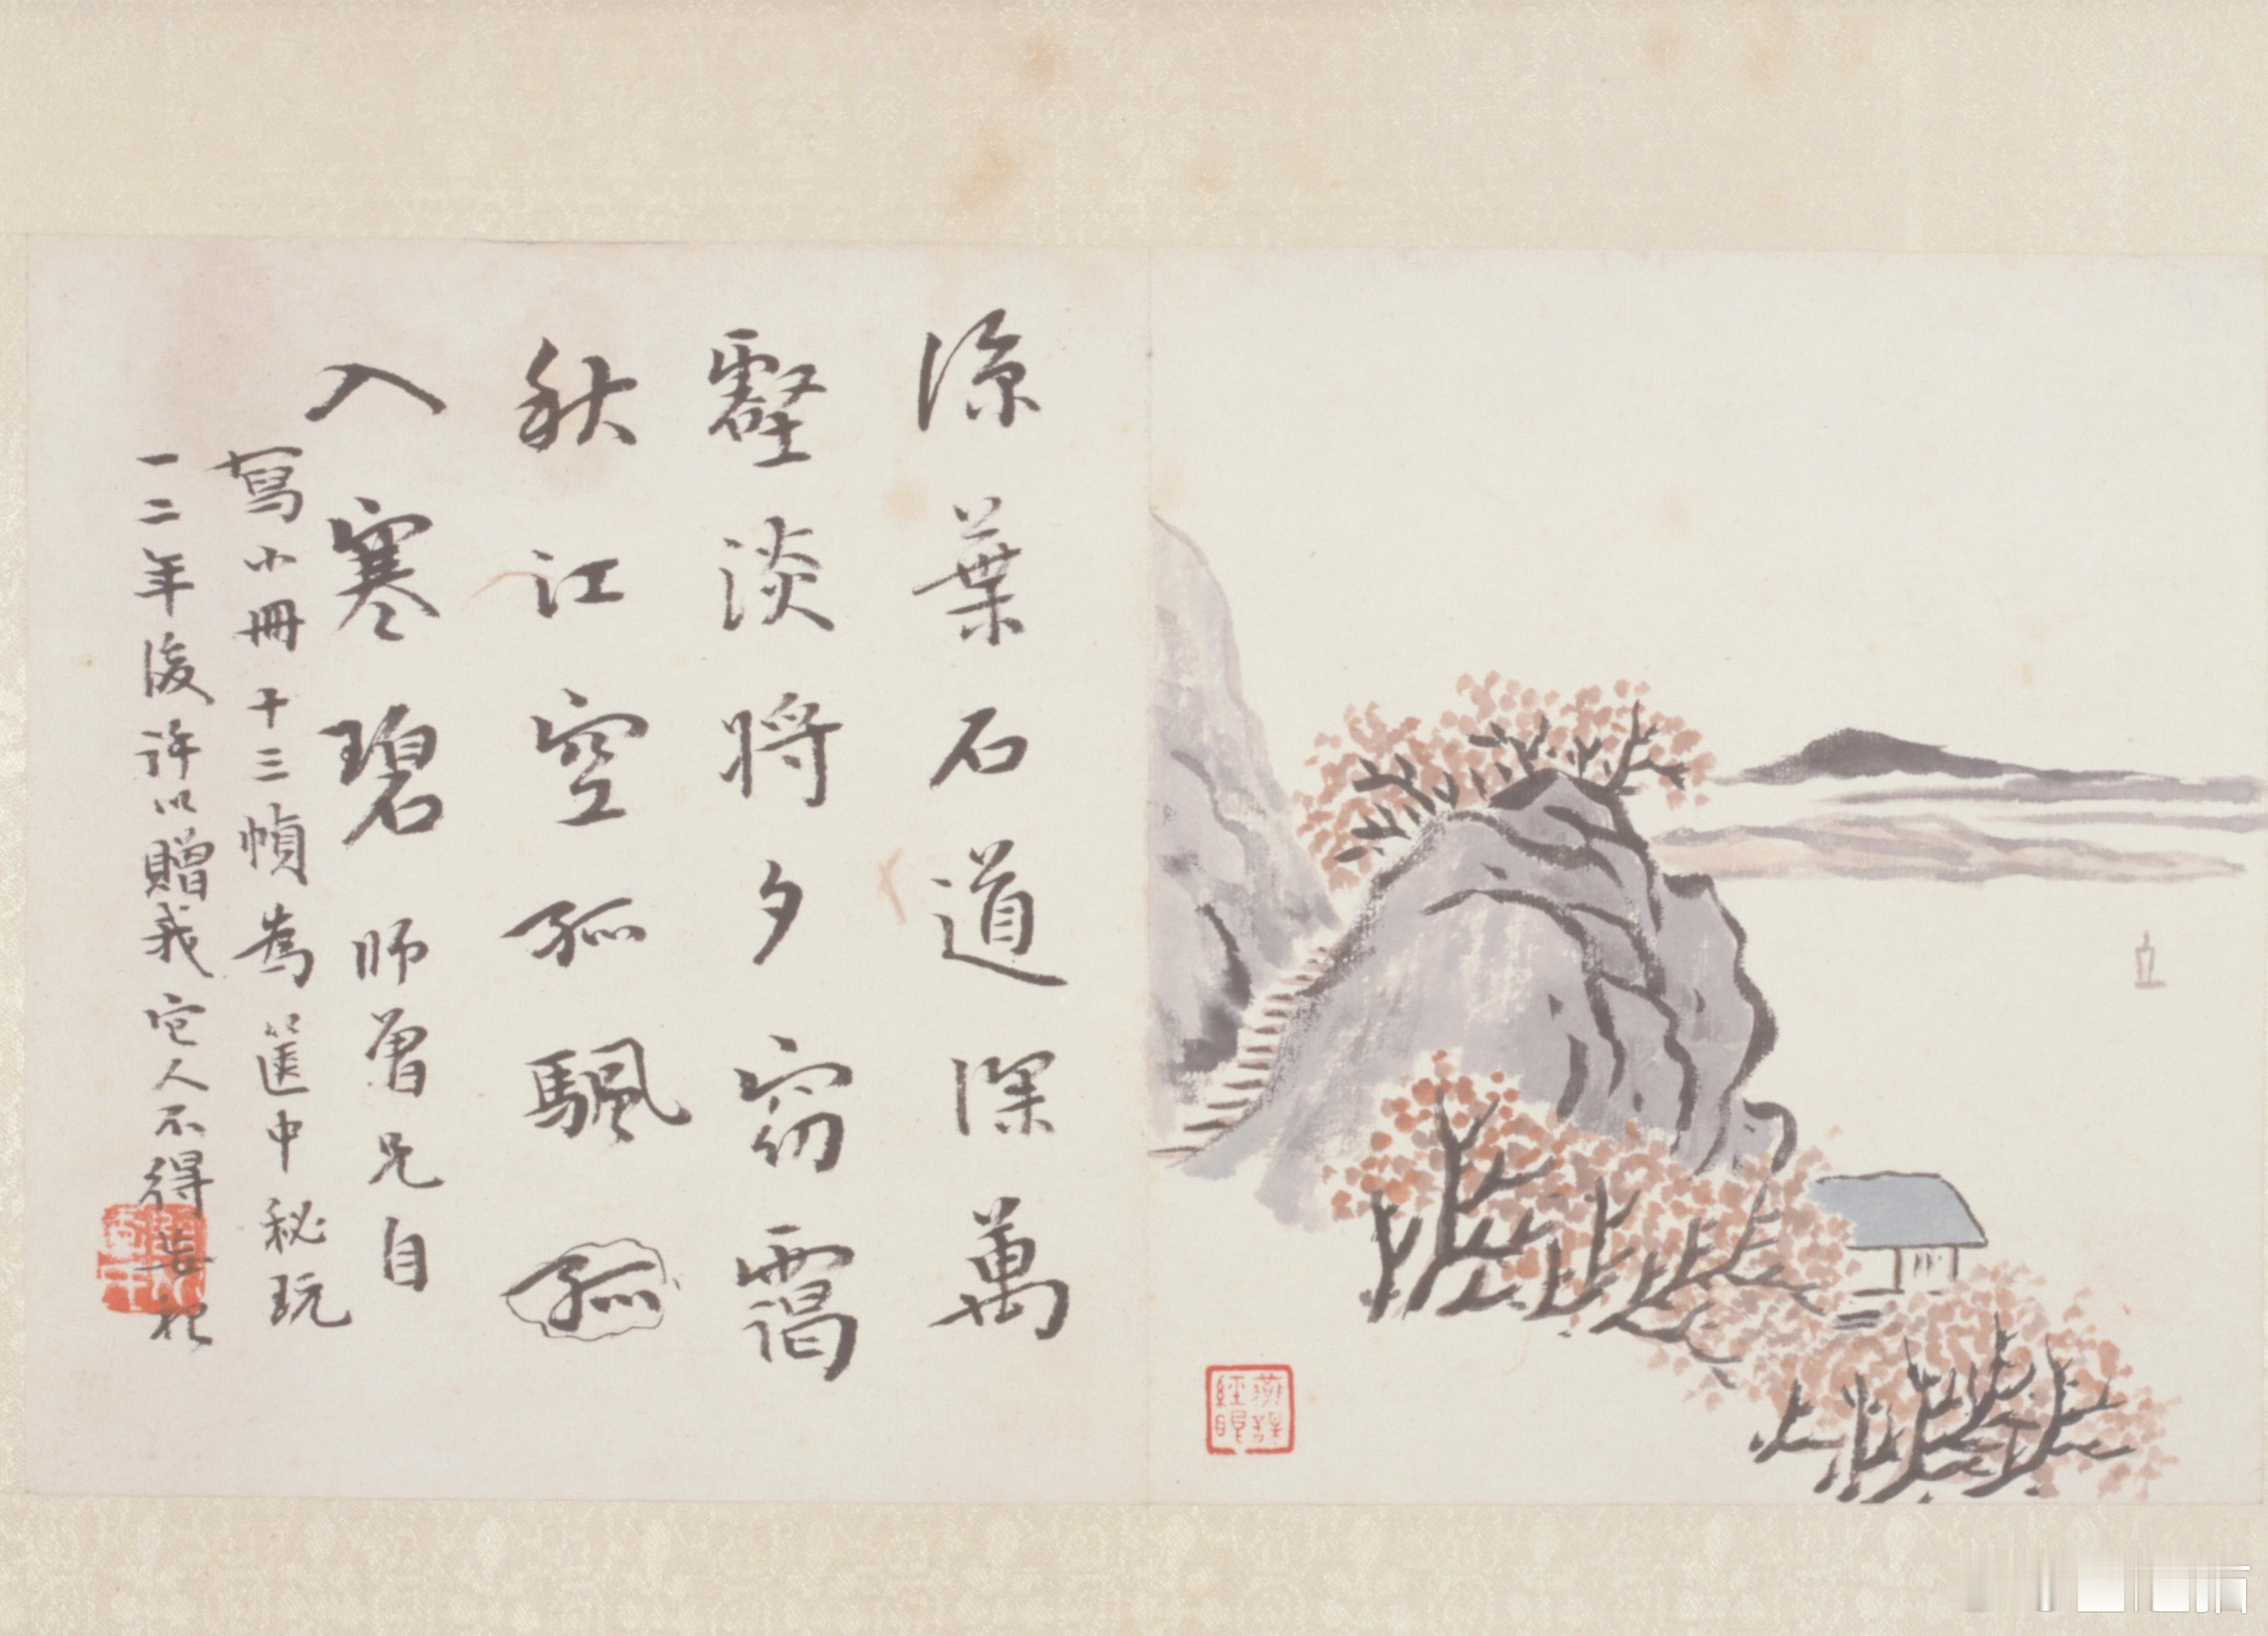 涼葉石道深萬
壑淡將夕窈靄
秋江空孤颿孤
入寒碧 師曾兄自
寫小冊十三幀為篋中秘玩
一二年後許以贈我它人不得